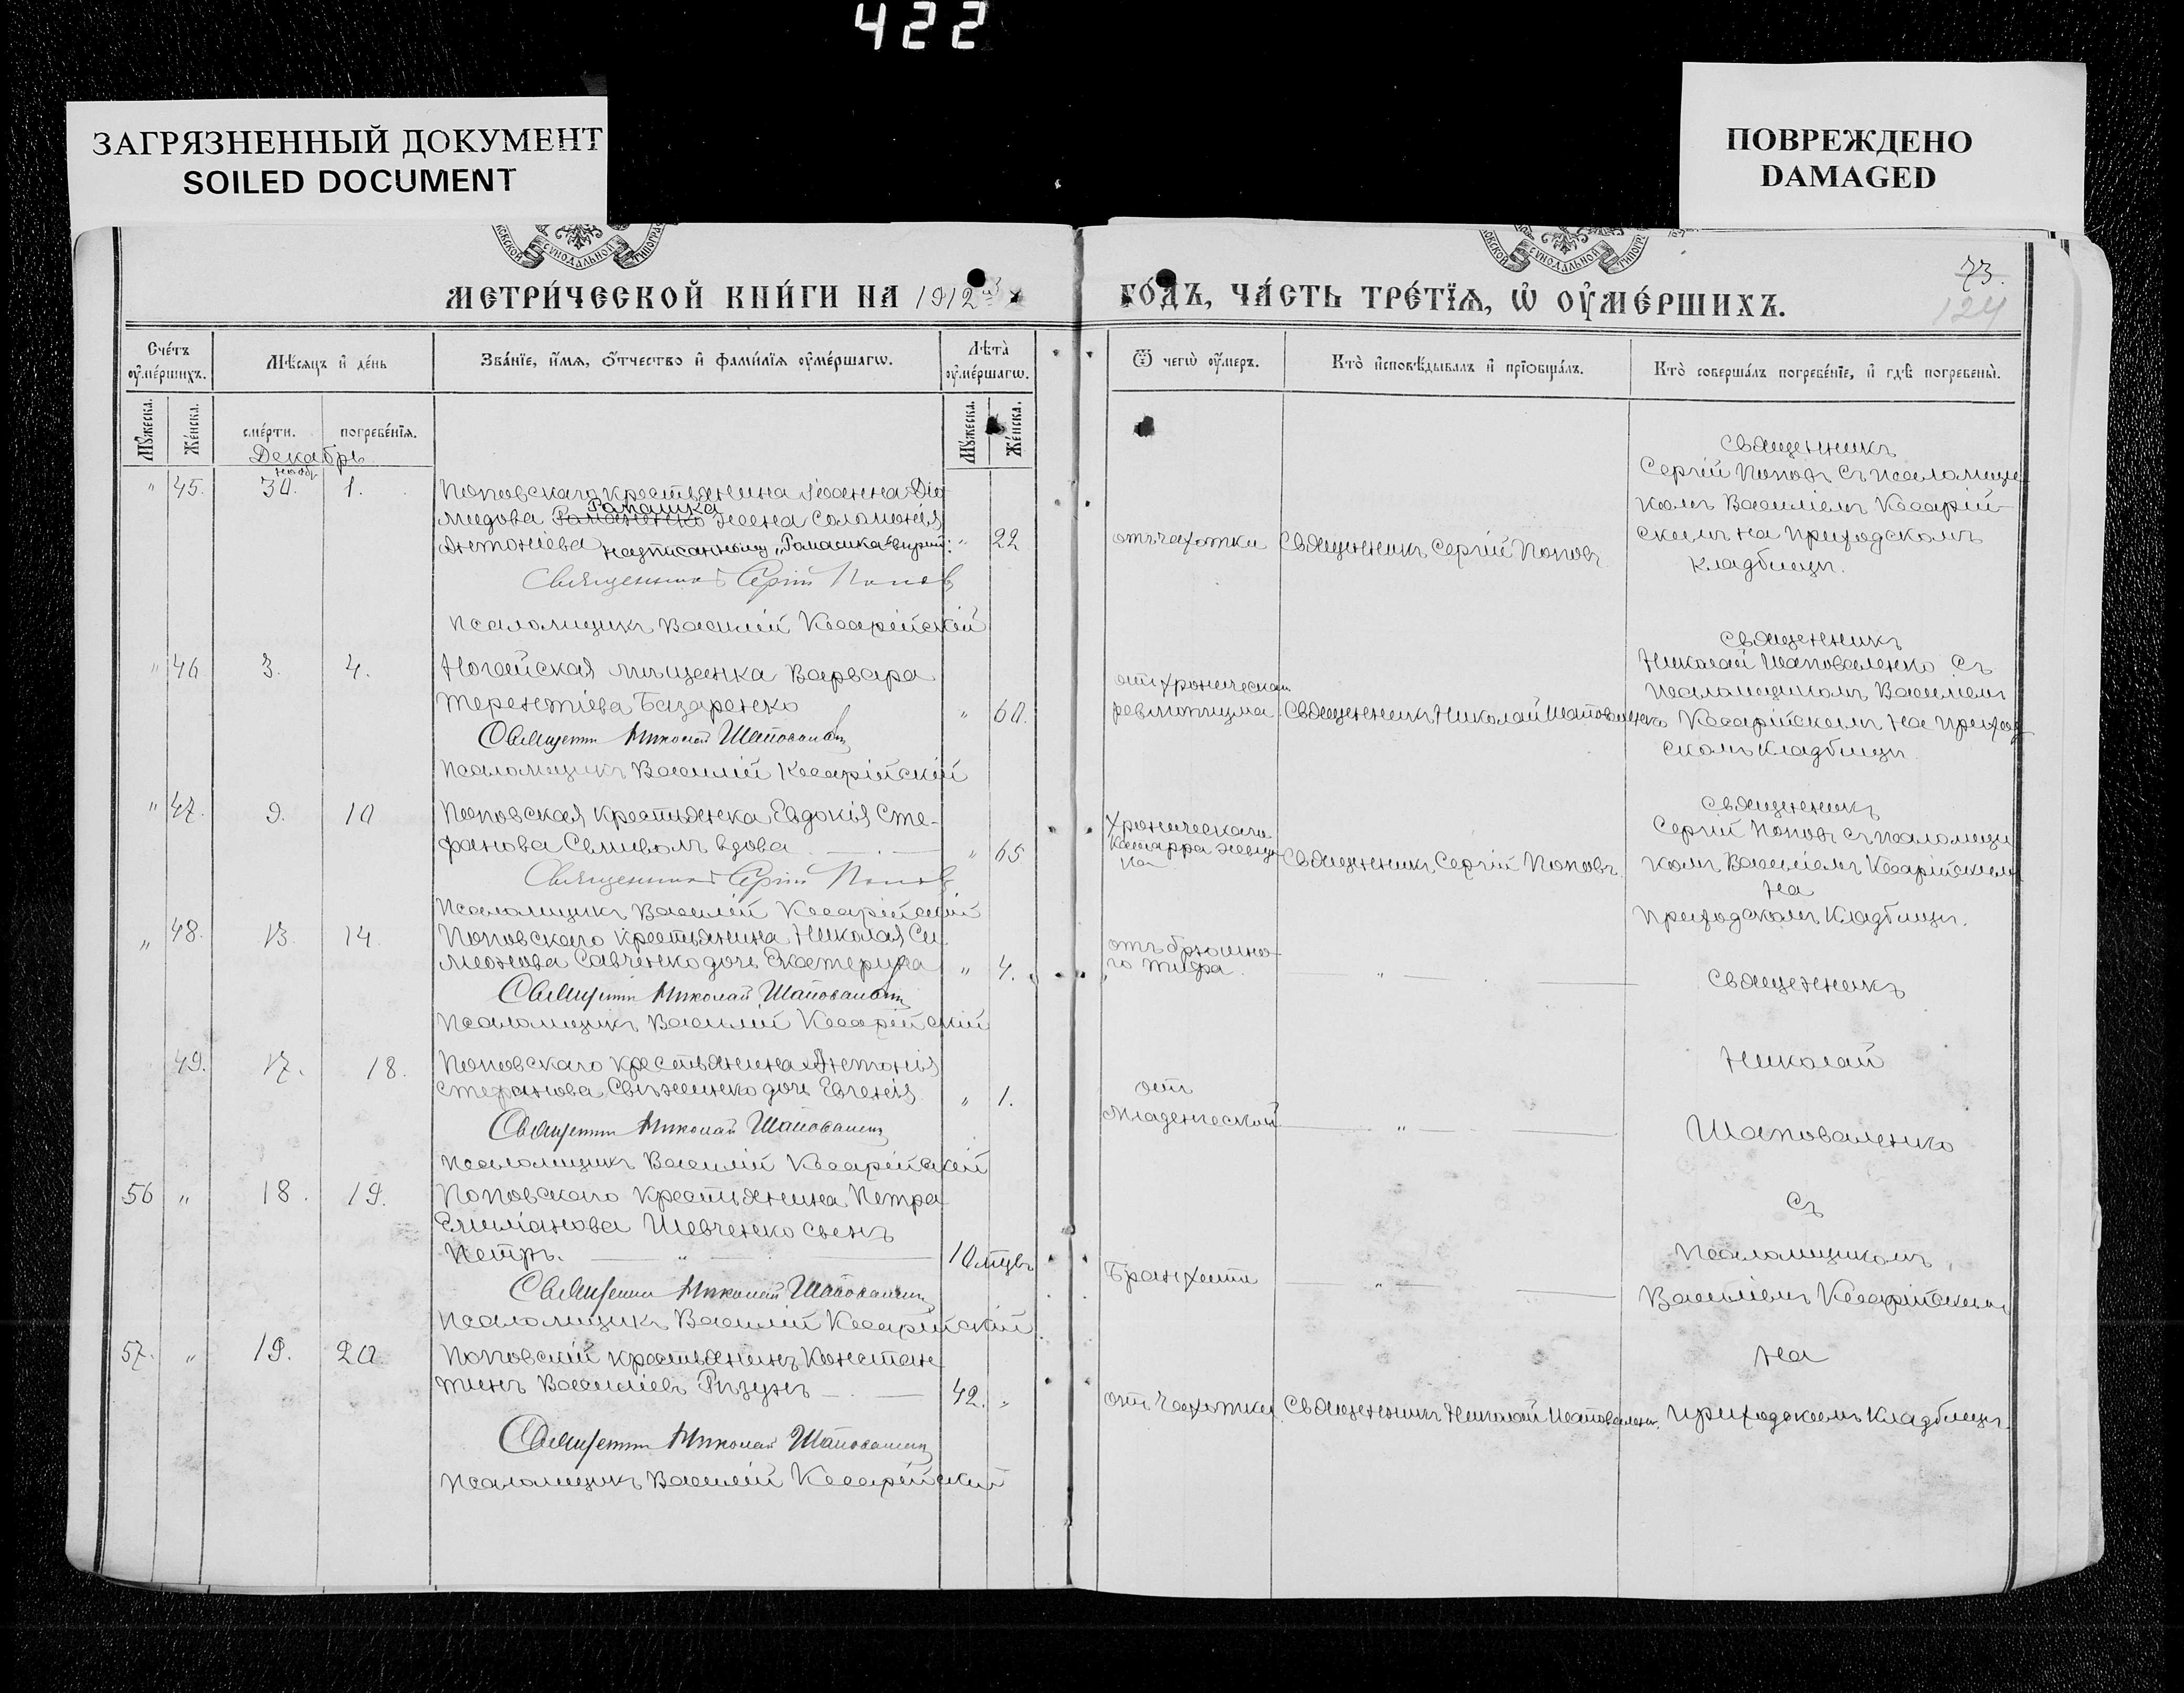 422
ЗАГРЯЗНЕННЫЙ ДОКУМЕНТ
SOILED DOCUMENT
ПОВРЕЖДЕНО
DAMAGED
МЕТРИ́ЧЕСКОЙ КНИ́ГИ НА 1912й
ГО́ДЪ, ЧА́СТЬ ТРЕ́ТЇѦ, Ѡ҆ ОУ҆МЕ́РШИХЪ.
73.
124
Сче́тъ оу҆ме́ршихъ.
Мѣ́сяцъ и҆ де́нь
Зва́нїе, и҆́мѧ, ѻ҆́тчество и҆ фами́лїѧ оу҆ме́ршагѡ.
Лѣта̀ оу҆ме́ршагѡ.
Ѿ чегѡ̀ оу҆́меръ.
Кто̀ и҆сповѣ́дывалъ и҆ прїѡбща́лъ.
Кто̀ соверша́лъ погребе́нїе, и҆ гдѣ̀ погребены̀.
Мꙋ́жеска.
Же́нска.
сме́рти.
погребе́нїѧ.
Мꙋ́жеска.
Же́нска.
Декабрь
ноябр
" 45. 30. 1.
Поповскаго крестьянина Іоанна Дio
Ромашка
мидова Романенко жена Соломонія
Антоніева надписанному „Ромашка" вѣрить. " 22
Священникъ Сергій Поповъ
Псаломщикъ Василій Кесарійскій
отъ чахотки
Священникъ Сергій Поповъ
Священникъ
Сергій Поповъ съ псаломщи
комъ Василіемъ Кесарій-
скимъ на приходскомъ
кладбищѣ.
" 46 3. 4.
Ногайская мѣщанка Варвара
Терентіева Базаренко " 60.
Священник Николай Шаповаленко
Псаломщикъ Василій Кесарійскій
отъ хроническаго
ревматизма
Священникъ Николай Шаповаленко
Священникъ
Николай Шаповаленко съ
псаломщикомъ Василіемъ
Кесарійскимъ на приход
скомъ кладбищѣ
" 47. 9. 10
Поповская крестьянка Евдокія Сте-
фанова Семиволъ вдова " 65
Священникъ Сергій Поповъ
Псаломщикъ Василій Кесарійскій
хроническаго
катарра желуд-
ка
Священникъ Сергій Поповъ.
Священникъ
Сергій Поповъ съ псаломщи
комъ Василіемъ Кесарійскимъ
на
приходскомъ кладбищѣ.
" 48. 13. 14.
Поповскаго крестьянина Николая Си
меонова Савченко дочь Екатерина " 4.
Священник Николай Шаповаленко
Псаломщикъ Василій Кесарійскій
отъ брюшно-
го тифа.
"
Священникъ
49. 17. 18.
Поповскаго крестьянина Антонія
Стефанова Свѣженко дочь Евгенія " 1.
Священник Николай Шаповаленко
Псаломщикъ Василій Кесарійскій
отъ
младенческой
"
Николай
Шаповаленко
56 " 18. 19.
Поповскаго крестьянина Петра
Емиліанова Шевченко сынъ
Петръ. " 10 мцвъ
Священник Николай Шаповаленко
Псаломщикъ Василій Кесарійскій
Бранхита
"
съ
псаломщикомъ
Василіемъ Кесарійскимъ
57. " 19. 20.
Поповскій крестьянинъ Констан
тинъ Василіевъ Ризунъ 42. "
Священник Николай Шаповаленко
Псаломщикъ Василій Кесарійскій
отъ чахотки
Священникъ Николай Шаповаленк.
на
приходскомъ кладбищѣ.